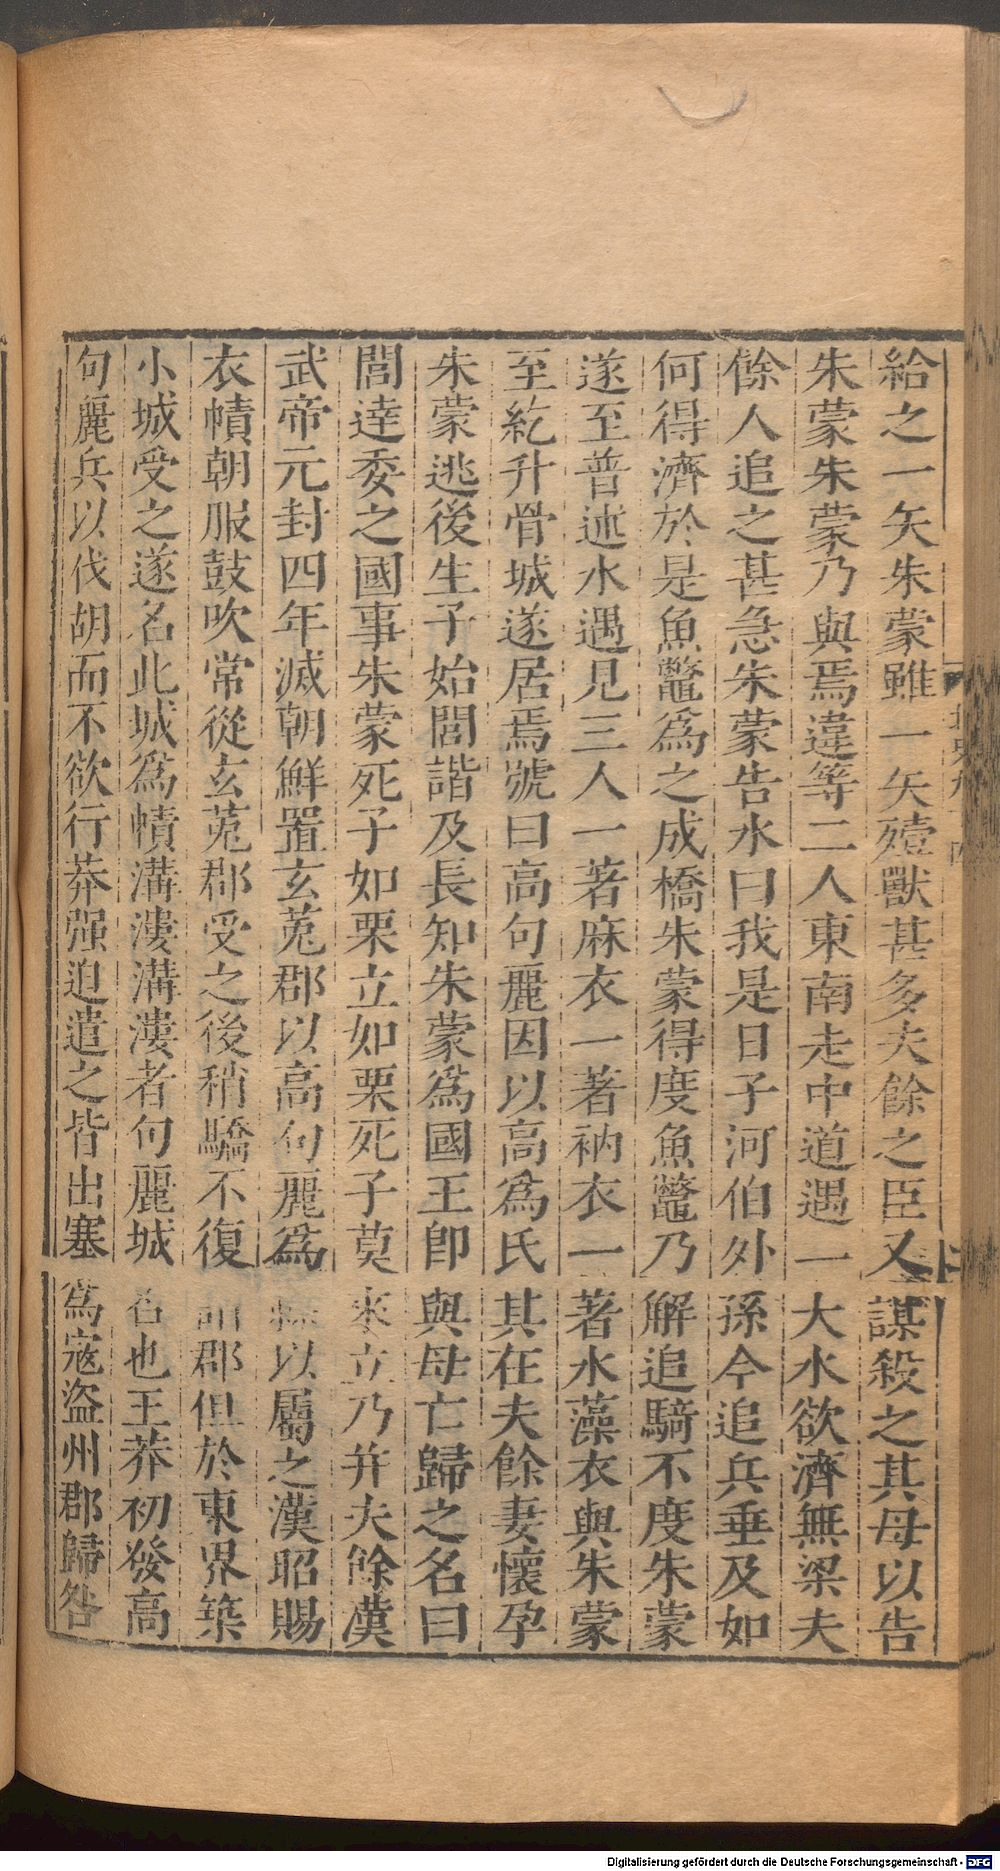 給之一矢朱蒙雖一矢殪獸甚多夫餘之臣又謀殺之其母以告
朱蒙朱蒙乃與焉違等二人東南走中道遇一大水欲濟無梁夫
餘人追之甚急朱蒙告水曰我是日子河伯外孫今追兵垂及如
何得濟於是魚鼈爲之成橋朱蒙得度魚鼈乃解追騎不度朱蒙
遂至普述水遇見三人一著麻衣一著衲衣一著水藻衣與朱蒙
至紇升骨城遂居焉號曰高句麗因以高爲氏其在夫餘妻懷孕
朱蒙逃後生子始閭諧及長知朱蒙爲國王卽與母亡歸之名曰
閭達委之國事朱蒙死子如栗立如栗死子莫來立乃并夫餘漢
武帝元封四年滅朝鮮置玄菟郡以高句麗爲縣以屬之漢昭賜
衣幘朝服鼓吹常從玄菟郡受之後稍驕不復詣郡但於東界築
小城受之遂名此城爲幘溝漊溝漊者句麗城名也王莽初發高
句麗兵以伐胡而不欲行莽强迫遣之皆出塞爲寇盜州郡歸咎
Digitalisierung gefördert durch die Deutsche Forschungsgemeinschaft - DFG